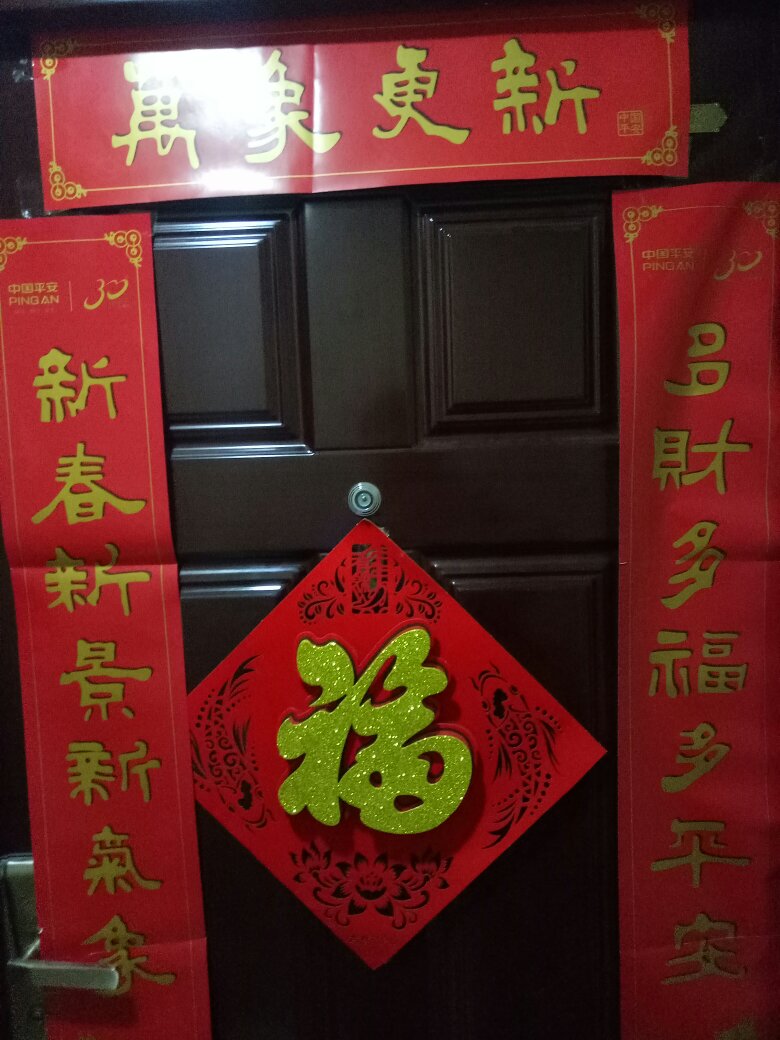 萬象更新
中国
平安
中国平安
PING AN
30
新春新景新氣象
中国平安
PING AN
30
多財多福多平安
福